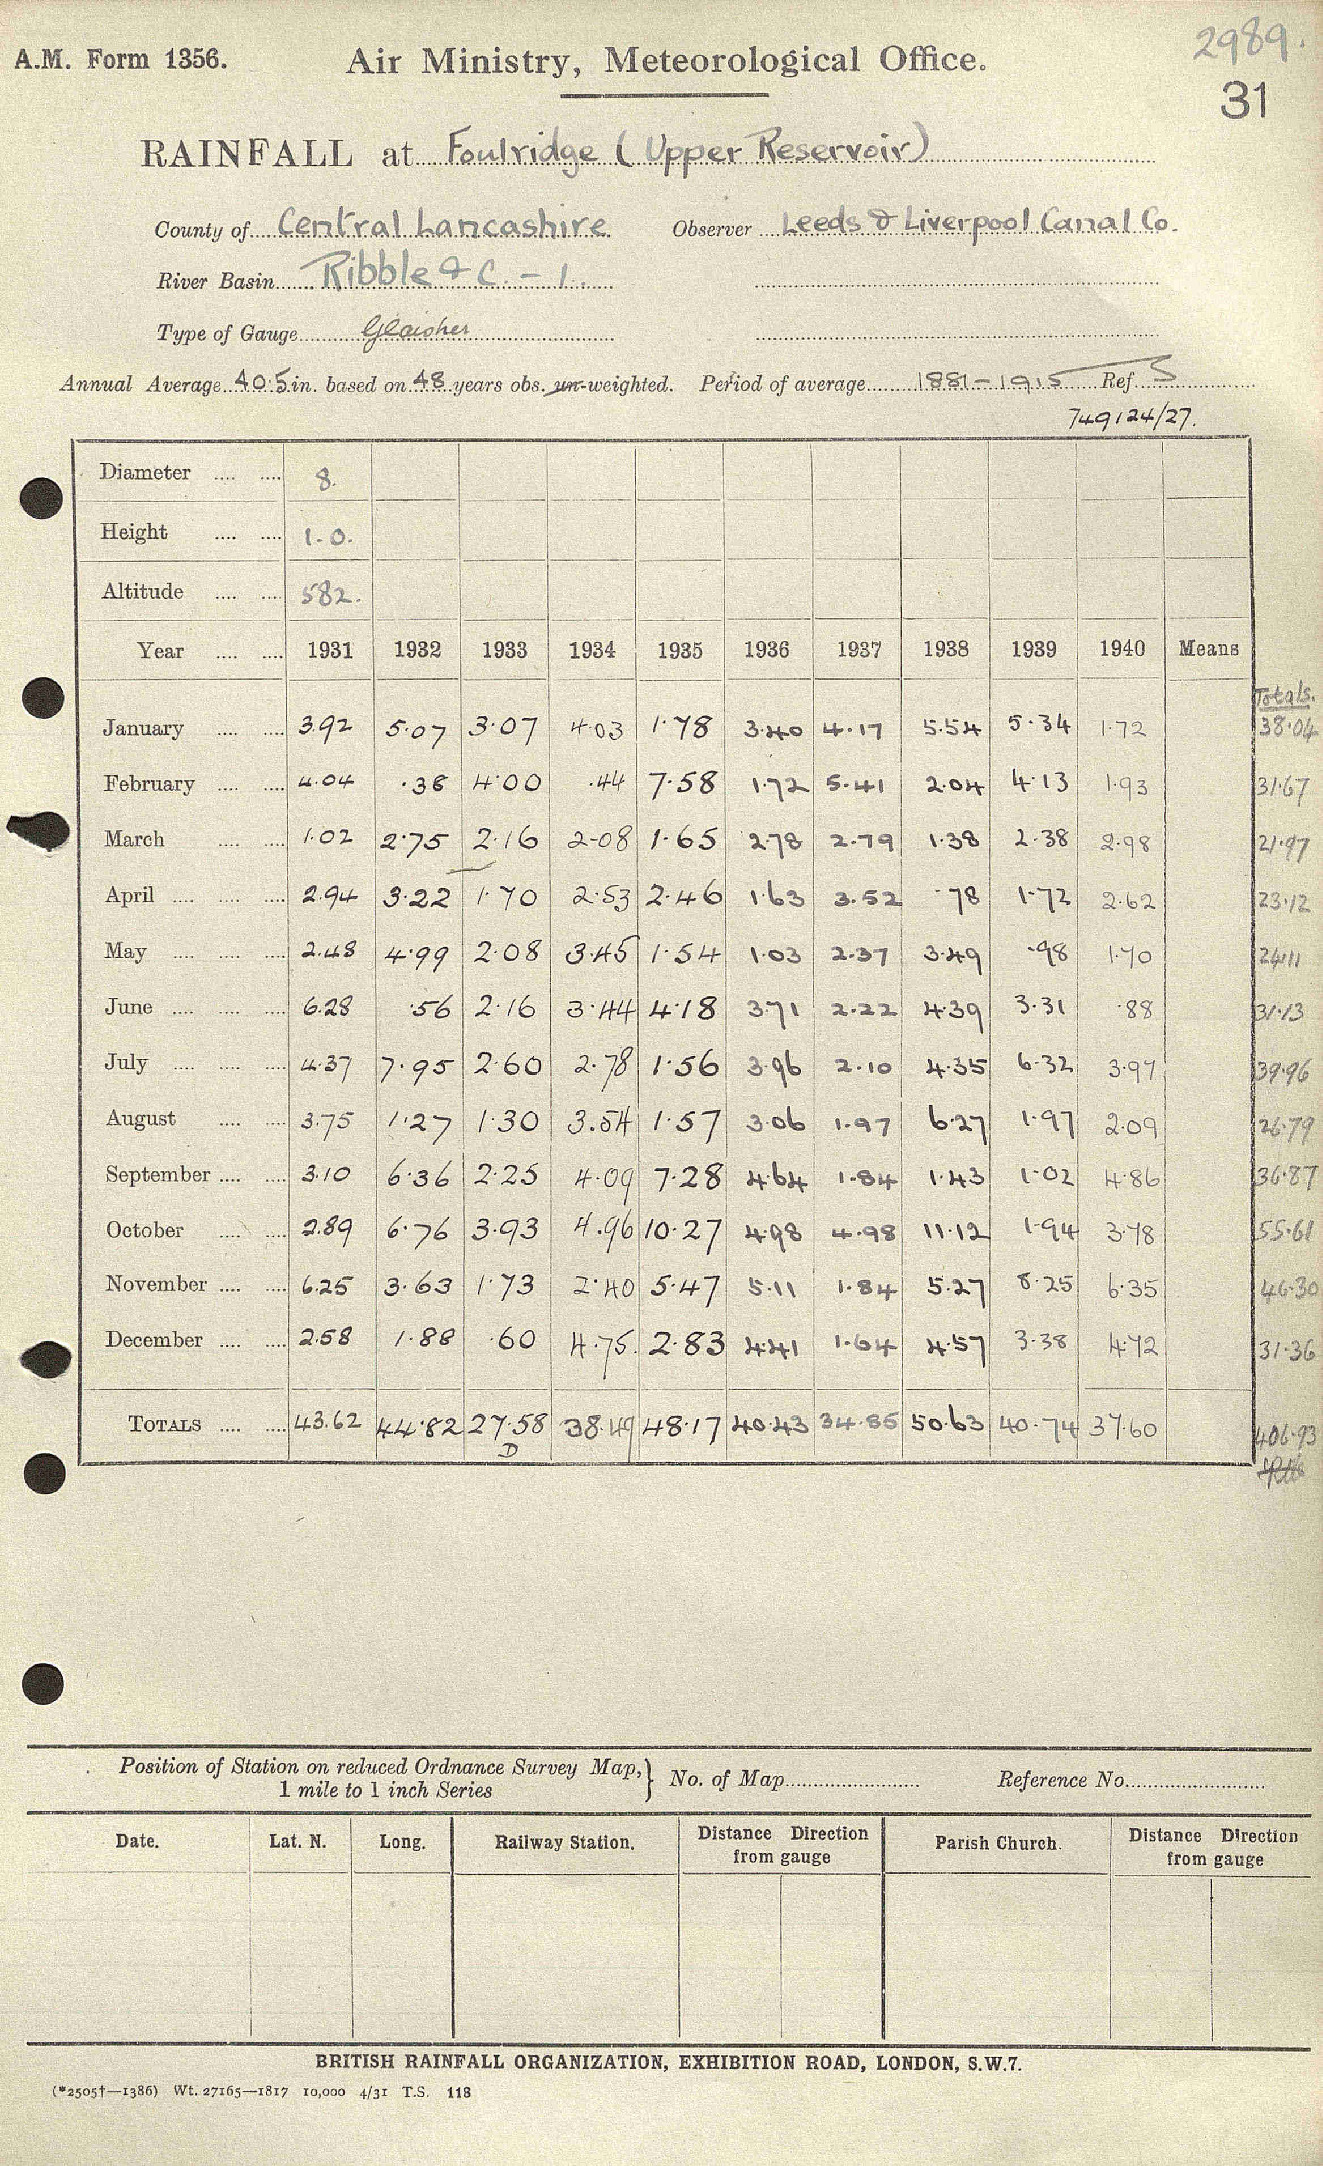 2989.
A.M. Form 1356. Air Ministry, Meteorological Office.
31
RAINFALL at Foulridge (Upper Reservoir)
County of Central Lancashire Observer Leeds & Liverpool Canal Co.
River Basin Ribble & C. - 1.
Type of Gauge Glaisher
Annual Average 40.5 in. based on 48 years obs. un-weighted. Period of average 1881-1915 Ref. S
749124/27.
Diameter 8.
Height 1.0.
Altitude 582.
Year 1931 1932 1933 1934 1935 1936 1937 1938 1939 1940 Means
Totals.
January 3.92 5.07 3.07 4.03 1.78 3.40 4.17 5.54 5.34 1.72 38.04
February 4.04 .38 4.00 .44 7.58 1.72 5.41 2.04 4.13 1.93 31.67
March 1.02 2.75 2.16 2.08 1.65 2.78 2.79 1.38 2.38 2.98 21.97
April 2.94 3.22 1.70 2.53 2.46 1.63 3.52 .78 1.72 2.62 23.12
May 2.48 4.99 2.08 3.45 1.54 1.03 2.37 3.49 .98 1.70 24.11
June 6.28 .56 2.16 3.44 4.18 3.71 2.22 4.39 3.31 .88 31.13
July 4.37 7.95 2.60 2.78 1.56 3.96 2.10 4.35 6.32 3.97 39.96
August 3.75 1.27 1.30 3.54 1.57 3.06 1.97 6.27 1.97 2.09 26.79
September 3.10 6.36 2.25 4.09 7.28 4.64 1.84 1.43 1.02 4.86 36.87
October 2.89 6.76 3.93 4.96 10.27 4.98 4.98 11.12 1.94 3.78 55.61
November 6.25 3.63 1.73 2.40 5.47 5.11 1.84 5.27 8.25 6.35 46.30
December 2.58 1.88 .60 4.75 2.83 4.41 1.64 4.57 3.38 4.72 31.36
TOTALS 43.62 44.82 27.58 38.49 48.17 40.43 34.85 50.63 40.74 37.60 406.93
D
Position of Station on reduced Ordnance Survey Map, } No. of Map Reference No.
1 mile to 1 inch Series
Date. Lat. N. Long. Railway Station. Distance Direction from gauge Parish Church. Distance Direction from gauge
BRITISH RAINFALL ORGANIZATION, EXHIBITION ROAD, LONDON, S.W.7.
(*2505†—1386) Wt. 27165—1817 10,000 4/31 T.S. 118